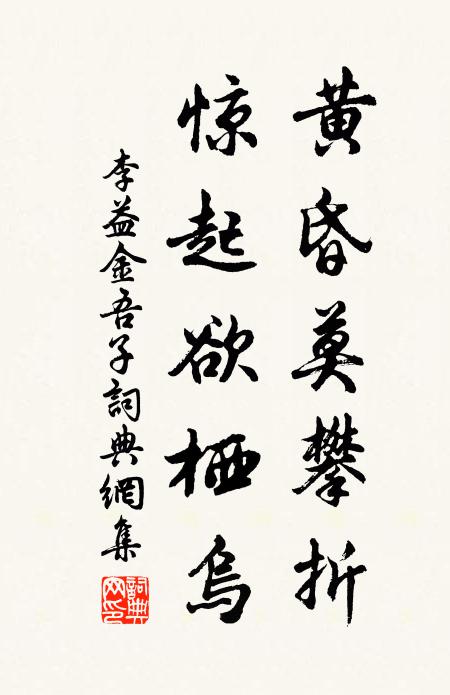 黄昏莫攀折
惊起欲栖乌
李益金吾子詞典網集
詞典網印